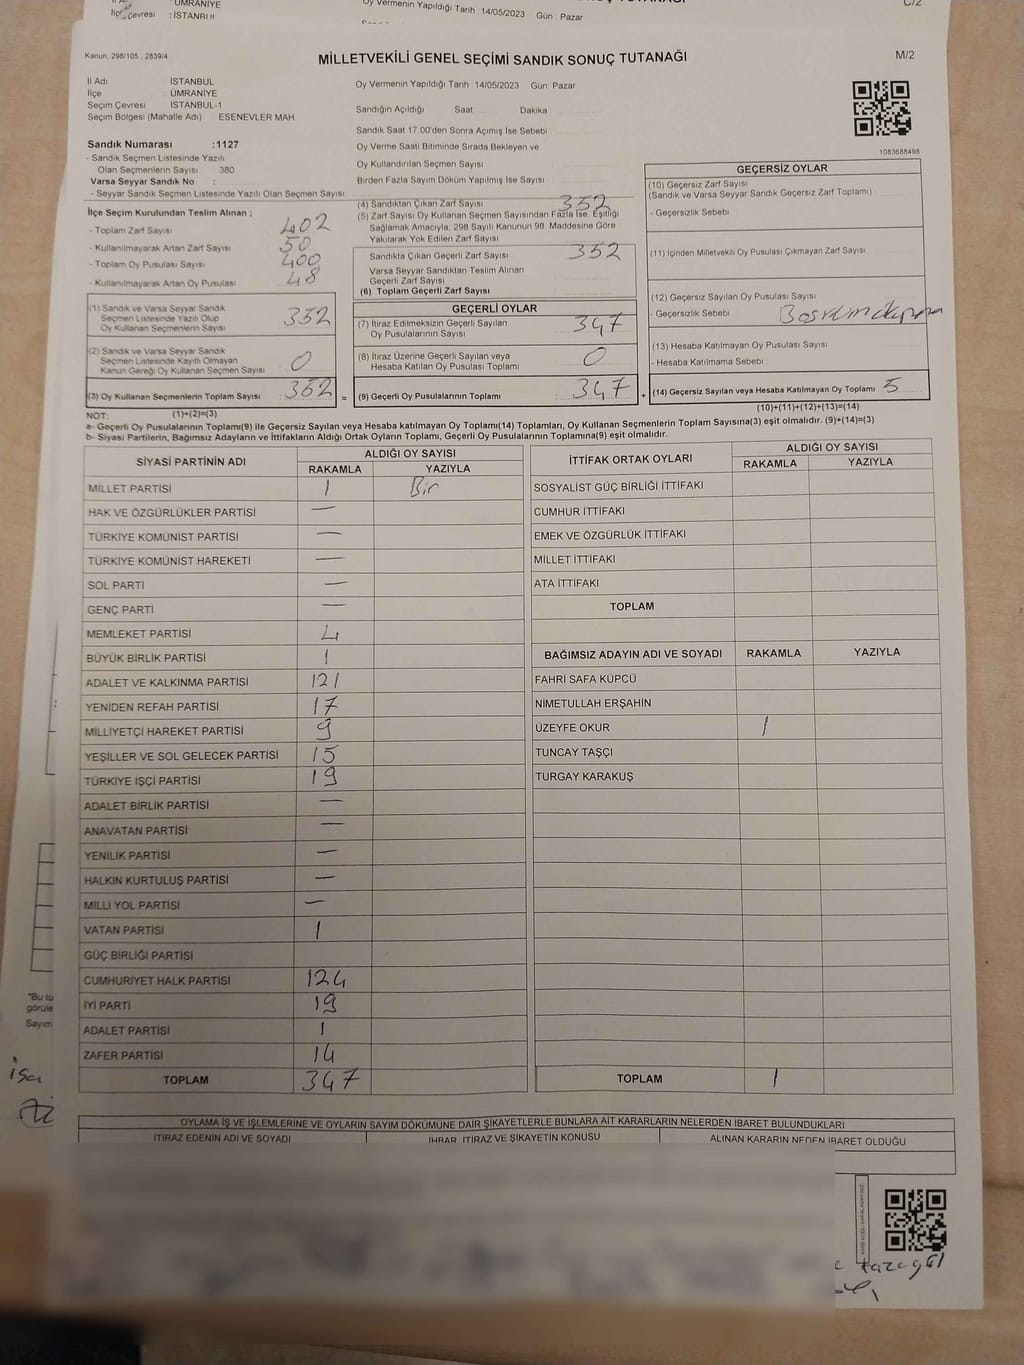 ÜMRANİYE
: İSTANBUL
Oy Vermenin Yapıldığı Tarih : 14/05/2023 Gün : Pazar
C/2
Kanun, 298/105 , 2839/4
MİLLETVEKİLİ GENEL SEÇİMİ SANDIK SONUÇ TUTANAĞI
M/2
İl Adı : İSTANBUL
İlçe : ÜMRANİYE
Seçim Çevresi : İSTANBUL-1
Seçim Bölgesi (Mahalle Adı) : ESENEVLER MAH.
Oy Vermenin Yapıldığı Tarih : 14/05/2023 Gün: Pazar
Sandığın Açıldığı Saat Dakika
Sandık Saat 17.00'den Sonra Açımış İse Sebebi
Oy Verme Saati Bitiminde Sırada Bekleyen ve
Oy Kullandırılan Seçmen Sayısı
Birden Fazla Sayım Döküm Yapılmış İse Sayısı
1083688498
Sandık Numarası :1127
- Sandık Seçmen Listesinde Yazılı
Olan Seçmenlerin Sayısı : 380
Varsa Seyyar Sandık No :
- Seyyar Sandık Seçmen Listesinde Yazılı Olan Seçmen Sayısı
İlçe Seçim Kurulundan Teslim Alınan ;
- Toplam Zarf Sayısı 402
- Kullanılmayarak Artan Zarf Sayısı 50
- Toplam Oy Pusulası Sayısı 400
- Kullanılmayarak Artan Oy Pusulası 48
(1) Sandık ve Varsa Seyyar Sandık
Seçmen Listesinde Yazılı Olup
Oy Kullanan Seçmenlerin Sayısı 352
(2) Sandık ve Varsa Seyyar Sandık
Seçmen Listesinde Kayıtlı Olmayan
Kanun Gereği Oy Kullanan Seçmen Sayısı 0
(3) Oy Kullanan Seçmenlerin Toplam Sayısı 352 =
(4) Sandıktan Çıkan Zarf Sayısı 352
(5) Zarf Sayısı Oy Kullanan Seçmen Sayısından Fazla İse, Eşitliği
Sağlamak Amacıyla, 298 Sayılı Kanunun 98. Maddesine Göre
Yakılarak Yok Edilen Zarf Sayısı
Sandıkta Çıkan Geçerli Zarf Sayısı 352
Varsa Seyyar Sandıktan Teslim Alınan
Geçerli Zarf Sayısı
(6) Toplam Geçerli Zarf Sayısı
GEÇERLİ OYLAR
(7) İtiraz Edilmeksizin Geçerli Sayılan
Oy Pusulalarının Sayısı 347
(8) İtiraz Üzerine Geçerli Sayılan veya
Hesaba Katılan Oy Pusulası Toplamı 0
(9) Geçerli Oy Pusulalarının Toplamı 347 +
GEÇERSİZ OYLAR
(10) Geçersiz Zarf Sayısı
(Sandık ve Varsa Seyyar Sandık Geçersiz Zarf Toplamı)
- Geçersizlik Sebebi
(11) İçinden Milletvekili Oy Pusulası Çıkmayan Zarf Sayısı
(12) Geçersiz Sayılan Oy Pusulası Sayısı
- Geçersizlik Sebebi
(13) Hesaba Katılmayan Oy Pusulası Sayısı
- Hesaba Katılmama Sebebi
(14) Geçersiz Sayılan veya Hesaba Katılmayan Oy Toplamı 5
NOT: (1)+(2)=(3)
(10)+(11)+(12)+(13)=(14)
a- Geçerli Oy Pusulalarının Toplamı(9) ile Geçersiz Sayılan veya Hesaba katılmayan Oy Toplamı(14) Toplamları, Oy Kullanan Seçmenlerin Toplam Sayısına(3) eşit olmalıdır. (9)+(14)=(3)
b- Siyasi Partilerin, Bağımsız Adayların ve İttifakların Aldığı Ortak Oyların Toplamı, Geçerli Oy Pusulalarının Toplamına(9) eşit olmalıdır.
SİYASİ PARTİNİN ADI
ALDIĞI OY SAYISI
RAKAMLA YAZIYLA
MİLLET PARTİSİ 1 Bir
HAK VE ÖZGÜRLÜKLER PARTİSİ —
TÜRKİYE KOMÜNİST PARTİSİ —
TÜRKİYE KOMÜNİST HAREKETİ —
SOL PARTİ —
GENÇ PARTİ —
MEMLEKET PARTİSİ 4
BÜYÜK BİRLİK PARTİSİ 1
ADALET VE KALKINMA PARTİSİ 121
YENİDEN REFAH PARTİSİ 17
MİLLİYETÇİ HAREKET PARTİSİ 9
YEŞİLLER VE SOL GELECEK PARTİSİ 15
TÜRKİYE İŞÇİ PARTİSİ 19
ADALET BİRLİK PARTİSİ —
ANAVATAN PARTİSİ —
YENİLİK PARTİSİ —
HALKIN KURTULUŞ PARTİSİ —
MİLLİ YOL PARTİSİ —
VATAN PARTİSİ 1
GÜÇ BİRLİĞİ PARTİSİ
CUMHURİYET HALK PARTİSİ 124
İYİ PARTİ 19
ADALET PARTİSİ 1
ZAFER PARTİSİ 14
TOPLAM 347
İTTİFAK ORTAK OYLARI
ALDIĞI OY SAYISI
RAKAMLA YAZIYLA
SOSYALİST GÜÇ BİRLİĞİ İTTİFAKI
CUMHUR İTTİFAKI
EMEK VE ÖZGÜRLÜK İTTİFAKI
MİLLET İTTİFAKI
ATA İTTİFAKI
TOPLAM
BAĞIMSIZ ADAYIN ADI VE SOYADI RAKAMLA YAZIYLA
FAHRİ SAFA KÜPCÜ
NİMETULLAH ERŞAHİN
ÜZEYFE OKUR 1
TUNCAY TAŞÇI
TURGAY KARAKUŞ
TOPLAM 1
"Bu tu
görüle
Sayım
isa
OYLAMA İŞ VE İŞLEMLERİNE VE OYLARIN SAYIM DÖKÜMÜNE DAİR ŞİKAYETLERLE BUNLARA AİT KARARLARIN NELERDEN İBARET BULUNDUKLARI
İTİRAZ EDENİN ADI VE SOYADI
İHBAR, İTİRAZ VE ŞİKAYETİN KONUSU
ALINAN KARARIN NEDEN İBARET OLDUĞU